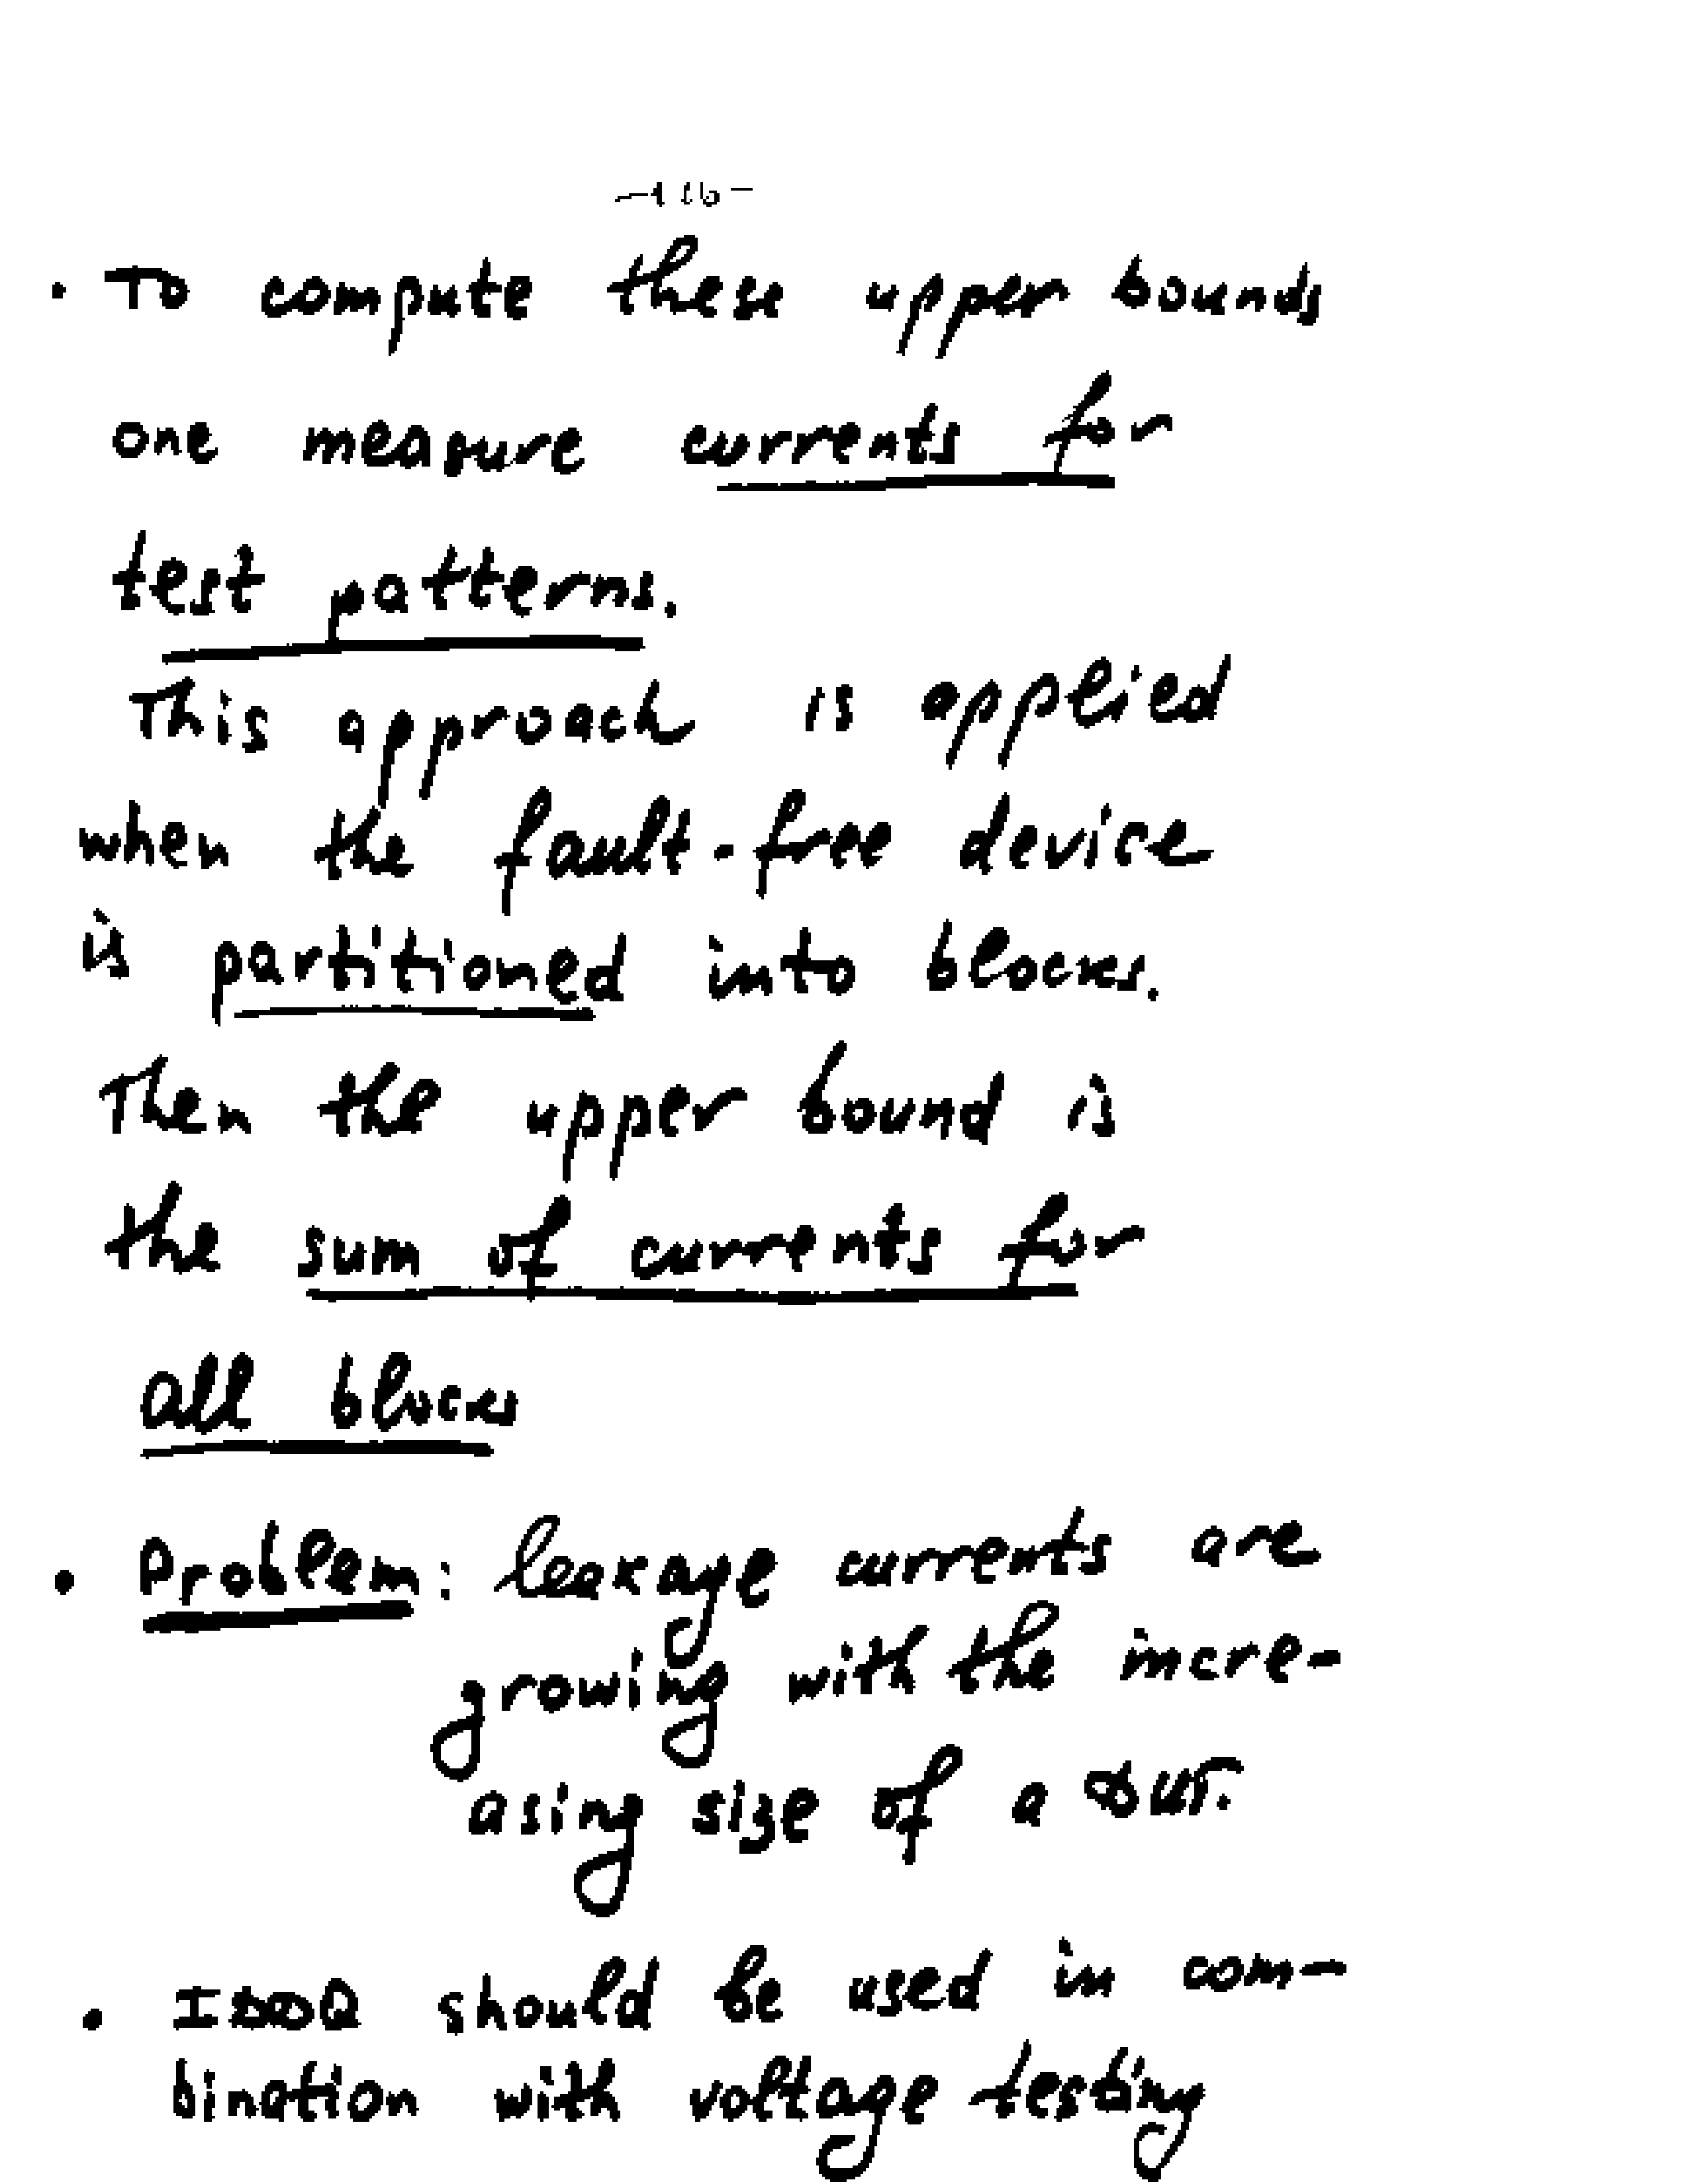 • To compute these upper bounds
one measure currents for
test patterns.
This approach is applied
when the fault-free device
is partitioned into blocks.
Then the upper bound is
the sum of currents for
all blocks
• Problem: leakage currents are
growing with the incre-
asing size of a DUT.
• IDDQ should be used in com-
bination with voltage testing